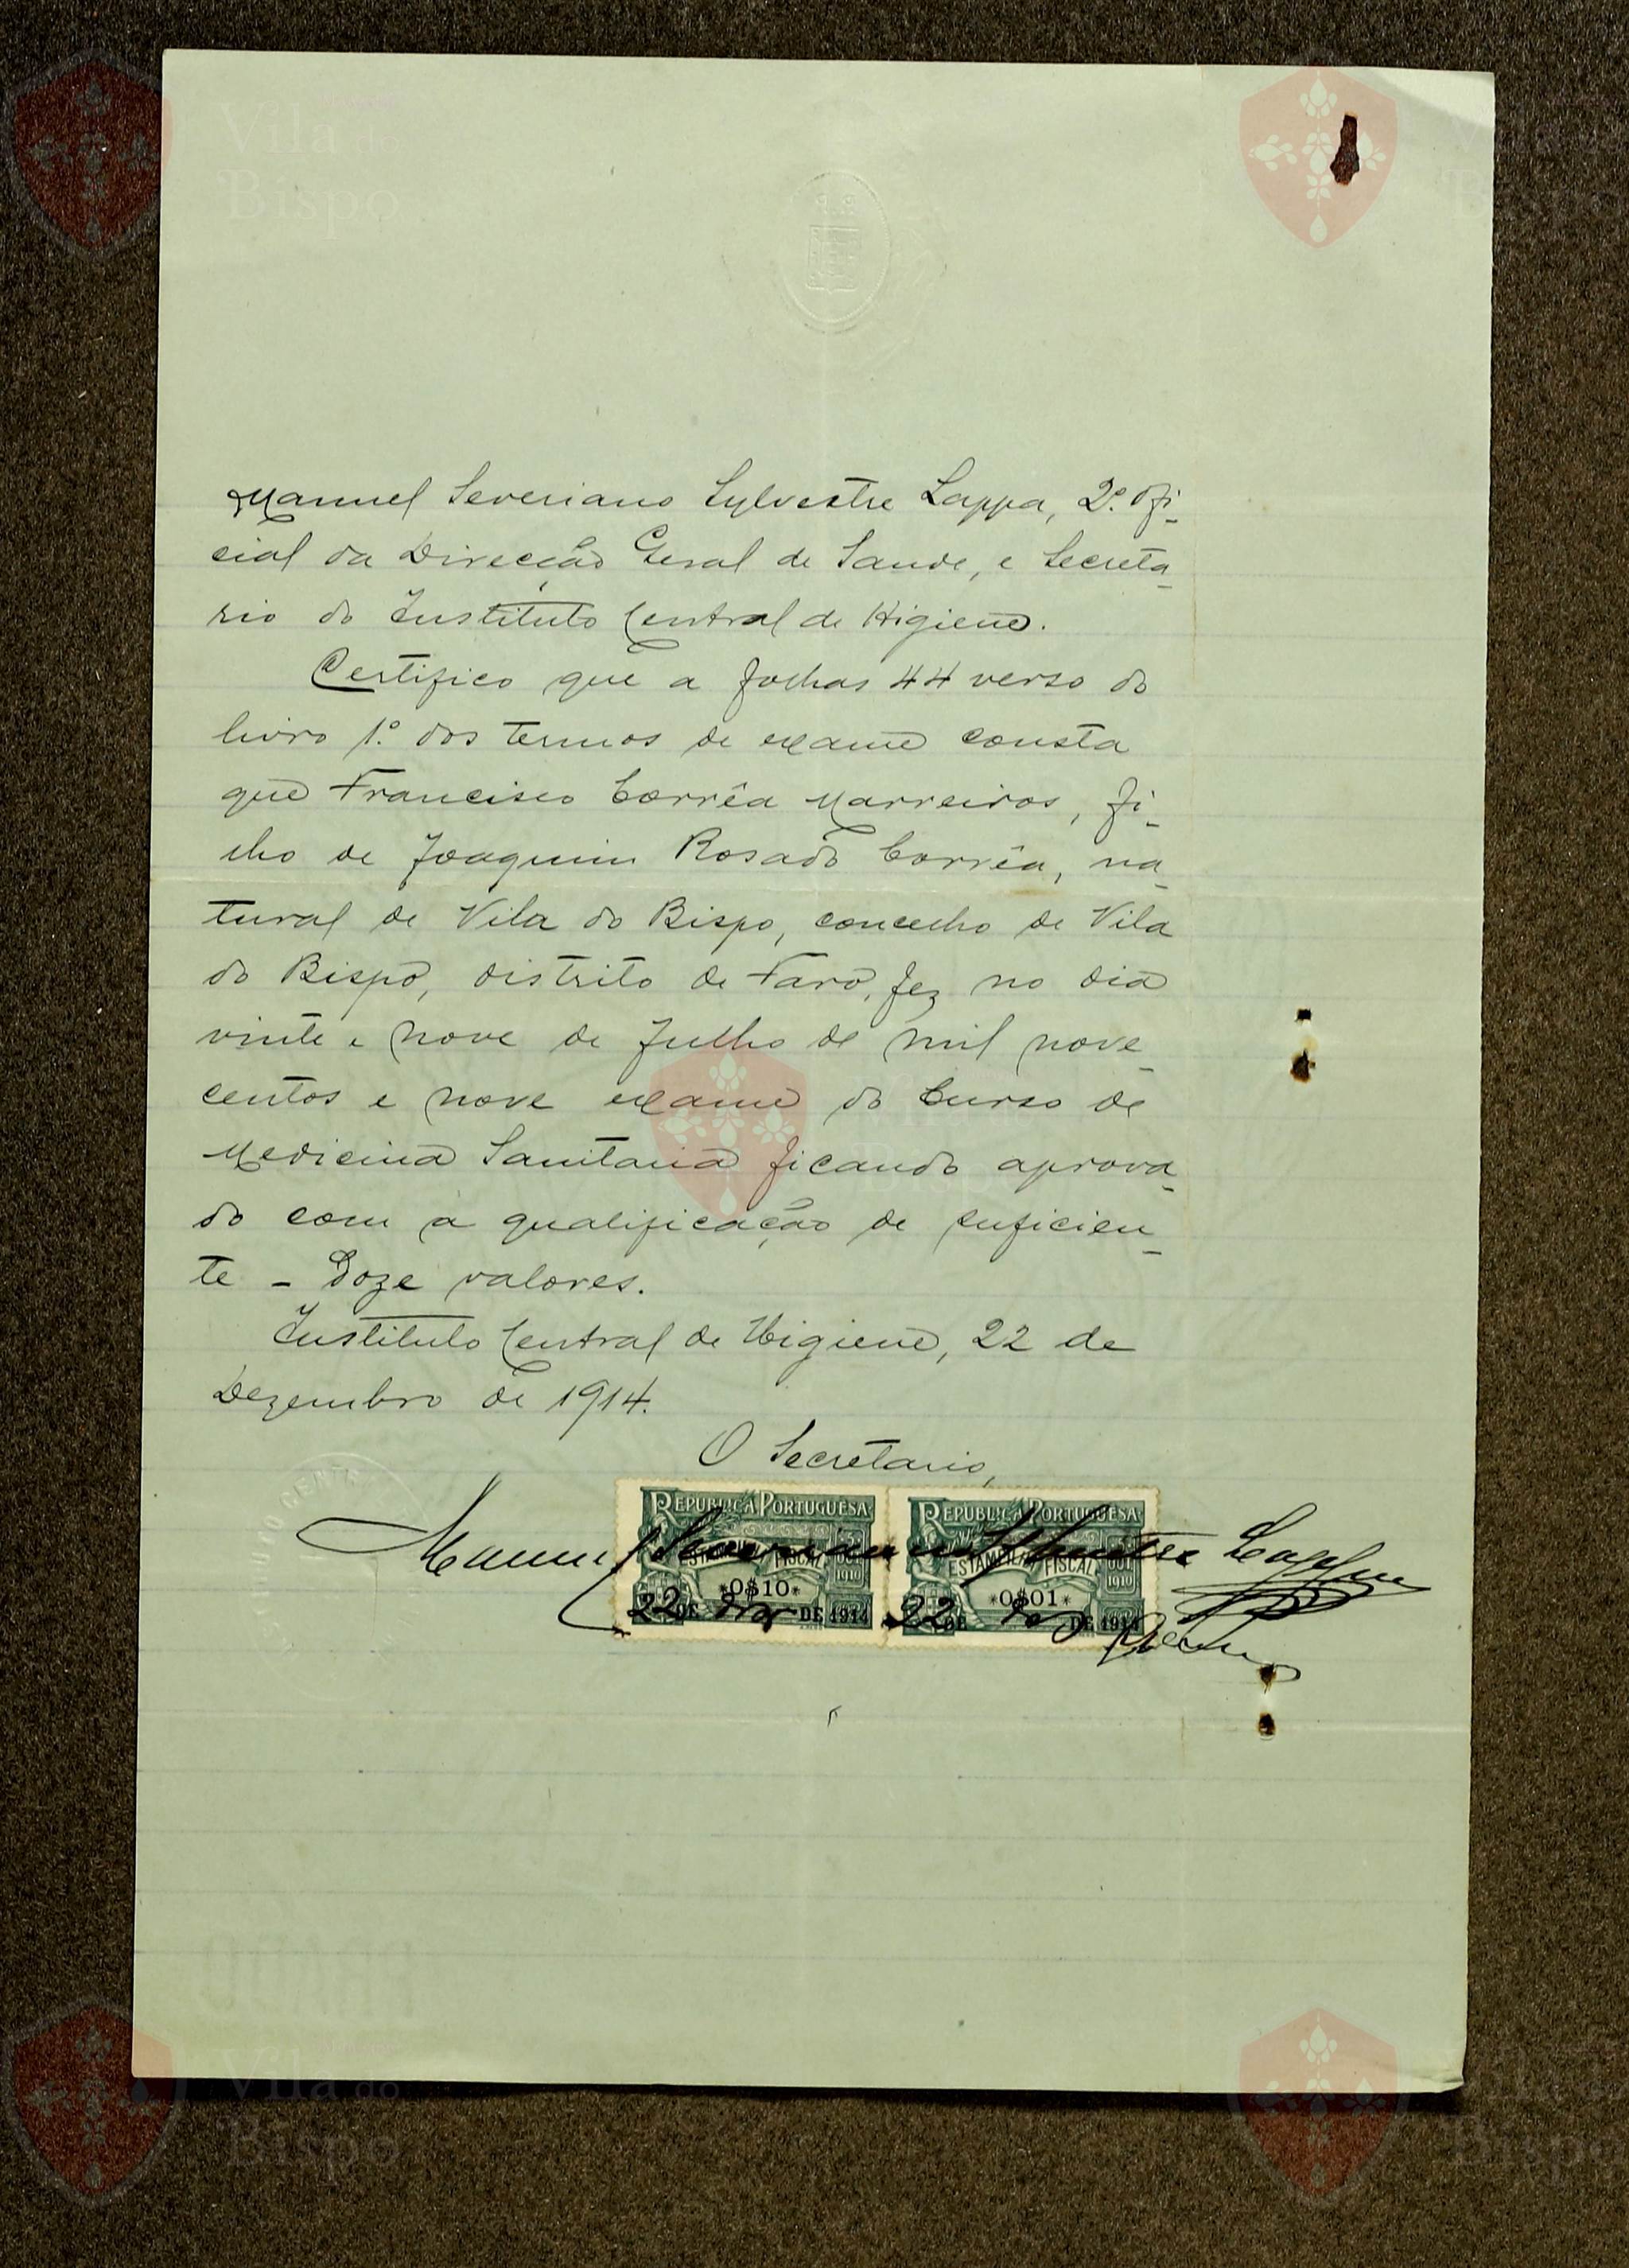 Manuel Severiano Sylvestre Lappa, 2.º Ofi-
cial da Direcção Geral de Saude, e Secreta-
rio do Instituto Central de Higiene.
Certifico que a folhas 44 verso do
livro 1.º dos termos de exame consta
que Francisco Corrêa Marreiros, fi-
lho de Joaquim Rosado Corrêa, na-
tural de Vila do Bispo, concelho de Vila
do Bispo, distrito de Faro, fez no dia
vinte e nove de Julho de mil nove-
centos e nove exame do Curso de
Medicina Sanitaria ficando aprova-
do com a qualificação de suficien-
te - Doze valores.
Instituto Central de Higiene, 22 de
Dezembro de 1914.
O Secretario,
Manuel Severiano Sylvestre Lappa
REPUBLICA PORTUGUESA
ESTAMPILHA FISCAL
1910
*0$10*
22 DE Dez DE 1914
REPUBLICA PORTUGUESA
ESTAMPILHA FISCAL
1910
*0$01*
22 DE Dez DE 1914
Vila do
Bispo
Vila do
Bispo
Vila do
Bispo